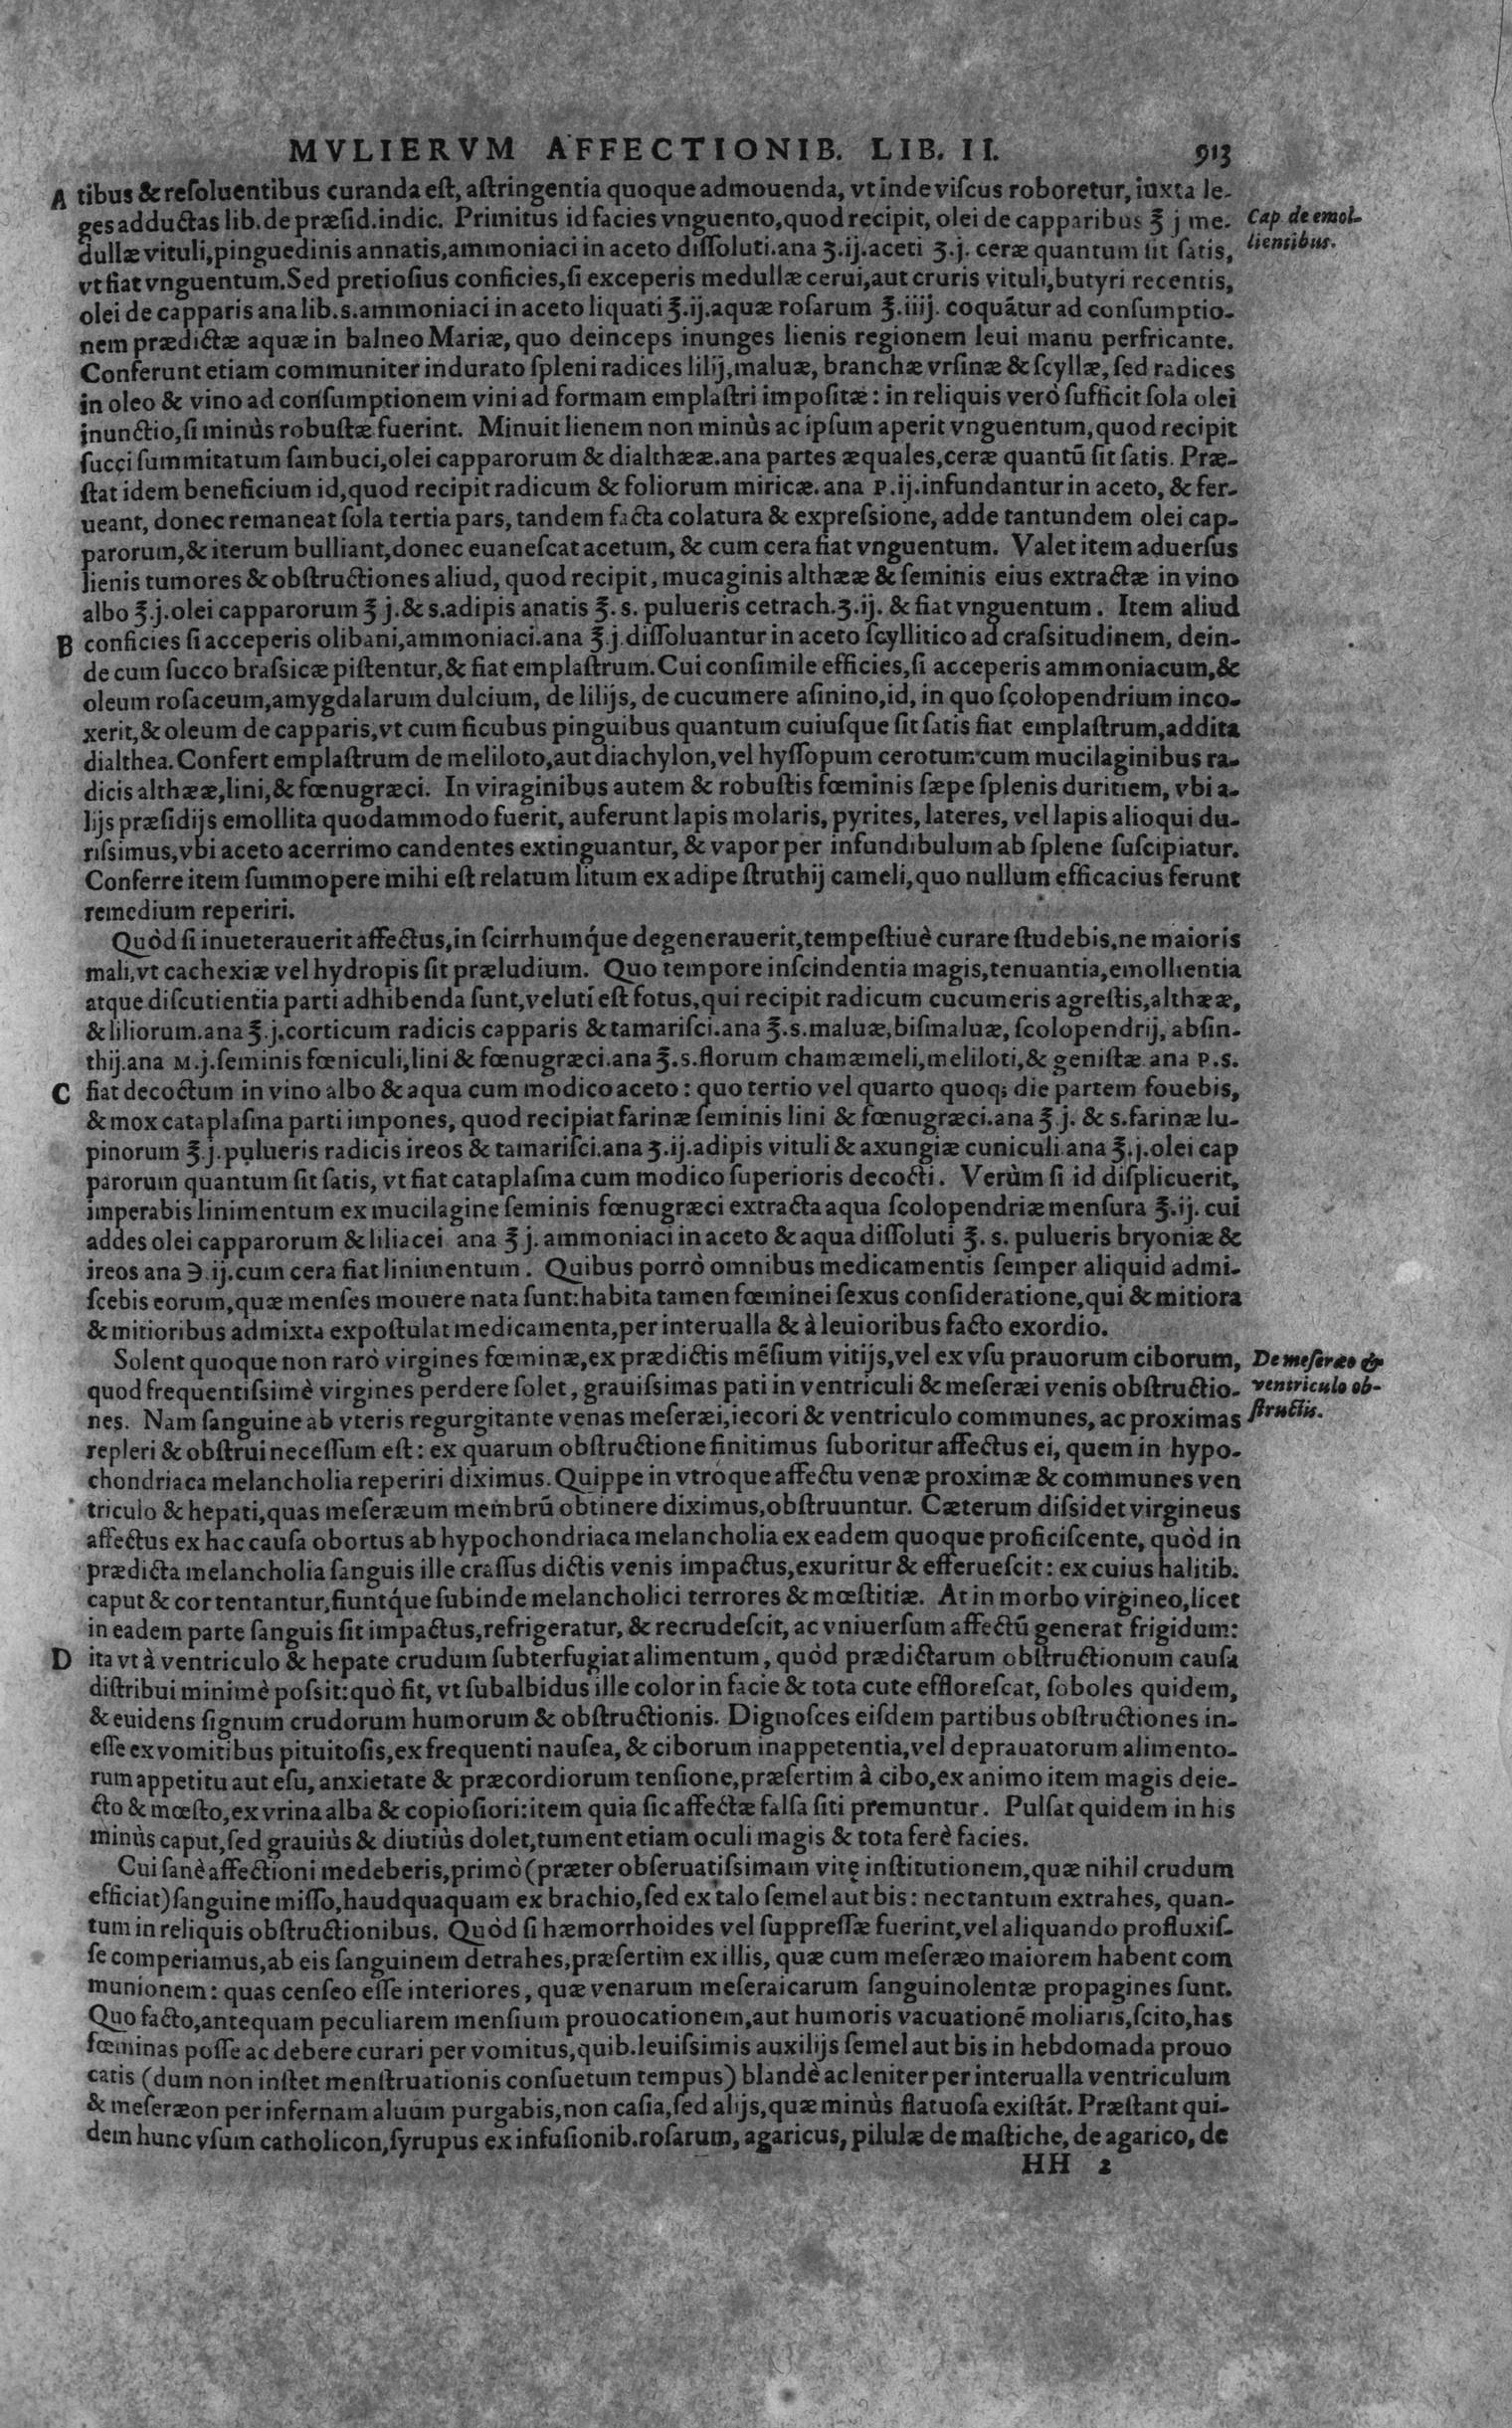 MVLIERVM AFFECTIONIB. LIB. II. 913
A tibus & reſoluentibus curanda eſt, aſtringentia quoque admouenda, vt inde viſcus roboretur, iuxta le-
ges adductas lib. de præſid. indic. Primitus id facies vnguento, quod recipit, olei de capparibus ℥ j me-
Cap. de emol-
dullæ vituli, pinguedinis annatis, ammoniaci in aceto diſſoluti. ana ʒ.ij. aceti ʒ.j. ceræ quantum ſit ſatis,
lientibus.
vt fiat vnguentum. Sed pretioſius conficies, ſi exceperis medullæ cerui, aut cruris vituli, butyri recentis,
olei de capparis ana lib.s. ammoniaci in aceto liquati ℥.ij. aquæ roſarum ℥.iiij. coquãtur ad conſumptio-
nem prædictæ aquæ in balneo Mariæ, quo deinceps inunges lienis regionem leui manu perfricante.
Conferunt etiam communiter indurato ſpleni radices lilij, maluæ, branchæ vrſinæ & ſcyllæ, ſed radices
in oleo & vino ad conſumptionem vini ad formam emplaſtri impoſitæ: in reliquis verò ſufficit ſola olei
inunctio, ſi minùs robuſtæ fuerint. Minuit lienem non minùs ac ipſum aperit vnguentum, quod recipit
ſucci ſummitatum ſambuci, olei capparorum & dialthææ. ana partes æquales, ceræ quantũ ſit ſatis. Præ-
ſtat idem beneficium id, quod recipit radicum & foliorum miricæ. ana P.ij. infundantur in aceto, & fer-
ueant, donec remaneat ſola tertia pars, tandem facta colatura & expreſsione, adde tantundem olei cap-
parorum, & iterum bulliant, donec euaneſcat acetum, & cum cera fiat vnguentum. Valet item aduerſus
lienis tumores & obſtructiones aliud, quod recipit, mucaginis althææ & ſeminis eius extractæ in vino
albo ℥.j. olei capparorum ℥ j. & s. adipis anatis ℥.s. pulueris cetrach. ʒ.ij. & fiat vnguentum. Item aliud
B conficies ſi acceperis olibani, ammoniaci. ana ℥.j. diſſoluantur in aceto ſcyllitico ad craſsitudinem, dein-
de cum ſucco braſsicæ piſtentur, & fiat emplaſtrum. Cui conſimile efficies, ſi acceperis ammoniacum, &
oleum roſaceum, amygdalarum dulcium, de lilijs, de cucumere aſinino, id, in quo ſcolopendrium inco-
xerit, & oleum de capparis, vt cum ficubus pinguibus quantum cuiuſque ſit ſatis fiat emplaſtrum, addita
dialthea. Confert emplaſtrum de meliloto, aut diachylon, vel hyſſopum cerotum cum mucilaginibus ra-
dicis althææ, lini, & fœnugræci. In viraginibus autem & robuſtis fœminis ſæpe ſplenis duritiem, vbi a-
lijs præſidijs emollita quodammodo fuerit, auferunt lapis molaris, pyrites, lateres, vel lapis alioqui du-
riſsimus, vbi aceto acerrimo candentes extinguantur, & vapor per infundibulum ab ſplene ſuſcipiatur.
Conferre item ſummopere mihi eſt relatum litum ex adipe ſtruthij cameli, quo nullum efficacius ferunt
remedium reperiri.
Quòd ſi inueterauerit affectus, in ſcirrhumq́ue degenerauerit, tempeſtiuè curare ſtudebis, ne maioris
mali, vt cachexiæ vel hydropis ſit præludium. Quo tempore inſcindentia magis, tenuantia, emollientia
atque diſcutientia parti adhibenda ſunt, veluti eſt fotus, qui recipit radicum cucumeris agreſtis, althææ,
& liliorum. ana ℥.j. corticum radicis capparis & tamariſci. ana ℥.s. maluæ, biſmaluæ, ſcolopendrij, abſin-
thij. ana M.j. ſeminis fœniculi, lini & fœnugræci. ana ℥.s. florum chamæmeli, meliloti, & geniſtæ ana P.s.
C fiat decoctum in vino albo & aqua cum modico aceto: quo tertio vel quarto quoq; die partem fouebis,
& mox cataplaſma parti impones, quod recipiat farinæ ſeminis lini & fœnugræci. ana ℥.j. & s. farinæ lu-
pinorum ℥.j. pulueris radicis ireos & tamariſci. ana ʒ.ij. adipis vituli & axungiæ cuniculi ana ℥.j. olei cap
parorum quantum ſit ſatis, vt fiat cataplaſma cum modico ſuperioris decocti. Verùm ſi id diſplicuerit,
imperabis linimentum ex mucilagine ſeminis fœnugræci extracta aqua ſcolopendriæ menſura ℥.ij. cui
addes olei capparorum & liliacei ana ℥ j. ammoniaci in aceto & aqua diſſoluti ℥.s. pulueris bryoniæ &
ireos ana ℈.ij. cum cera fiat linimentum. Quibus porrò omnibus medicamentis ſemper aliquid admi-
ſcebis eorum, quæ menſes mouere nata ſunt: habita tamen fœminei ſexus conſideratione, qui & mitiora
& mitioribus admixta expoſtulat medicamenta, per interualla & à leuioribus facto exordio.
Solent quoque non rarò virgines fœminæ, ex prædictis mẽſium vitijs, vel ex vſu prauorum ciborum,
De meſeræo &
quod frequentiſsimè virgines perdere ſolet, grauiſsimas pati in ventriculi & meſeræi venis obſtructio-
ventriculo ob-
nes. Nam ſanguine ab vteris regurgitante venas meſeræi, iecori & ventriculo communes, ac proximas
ſtructis.
repleri & obſtrui neceſſum eſt: ex quarum obſtructione finitimus ſuboritur affectus ei, quem in hypo-
chondriaca melancholia reperiri diximus. Quippe in vtróque affectu venæ proximæ & communes ven
triculo & hepati, quas meſeræum membrũ obtinere diximus, obſtruuntur. Cæterum diſsidet virgineus
affectus ex hac cauſa obortus ab hypochondriaca melancholia ex eadem quoque proficiſcente, quòd in
prædicta melancholia ſanguis ille craſſus dictis venis impactus, exuritur & efferueſcit: ex cuius halitib.
caput & cor tentantur, fiuntq́ue ſubinde melancholici terrores & mœſtitiæ. At in morbo virgineo, licet
in eadem parte ſanguis ſit impactus, refrigeratur, & recrudeſcit, ac vniuerſum affectũ generat frigidum:
D ita vt à ventriculo & hepate crudum ſubterfugiat alimentum, quòd prædictarum obſtructionum cauſa
diſtribui minimè poſsit: quò fit, vt ſubalbidus ille color in facie & tota cute effloreſcat, ſoboles quidem,
& euidens ſignum crudorum humorum & obſtructionis. Dignoſces eiſdem partibus obſtructiones in-
eſſe ex vomitibus pituitoſis, ex frequenti nauſea, & ciborum inappetentia, vel deprauatorum alimento-
rum appetitu aut eſu, anxietate & præcordiorum tenſione, præſertim à cibo, ex animo item magis deie-
cto & mœſto, ex vrina alba & copioſiori: item quia ſic affectæ falſa ſiti premuntur. Pulſat quidem in his
minùs caput, ſed grauiùs & diutiùs dolet, tument etiam oculi magis & tota ferè facies.
Cui ſanè affectioni medeberis, primò (præter obſeruatiſsimam vitę inſtitutionem, quæ nihil crudum
efficiat) ſanguine miſſo, haudquaquam ex brachio, ſed ex talo ſemel aut bis: nec tantum extrahes, quan-
tum in reliquis obſtructionibus. Quòd ſi hæmorrhoides vel ſuppreſſæ fuerint, vel aliquando profluxiſ-
ſe comperiamus, ab eis ſanguinem detrahes, præſertim ex illis, quæ cum meſeræo maiorem habent com
munionem: quas cenſeo eſſe interiores, quæ venarum meſeraicarum ſanguinolentæ propagines ſunt.
Quo facto, antequam peculiarem menſium prouocationem, aut humoris vacuationẽ moliaris, ſcito, has
fœminas poſſe ac debere curari per vomitus, quib. leuiſsimis auxilijs ſemel aut bis in hebdomada prouo
catis (dum non inſtet menſtruationis conſuetum tempus) blandè ac leniter per interualla ventriculum
& meſeræon per infernam aluum purgabis, non caſia, ſed alijs, quæ minùs flatuoſa exiſtãt. Præſtant qui-
dem hunc vſum catholicon, ſyrupus ex infuſionib. roſarum, agaricus, pilulæ de maſtiche, de agarico, de
HH 2